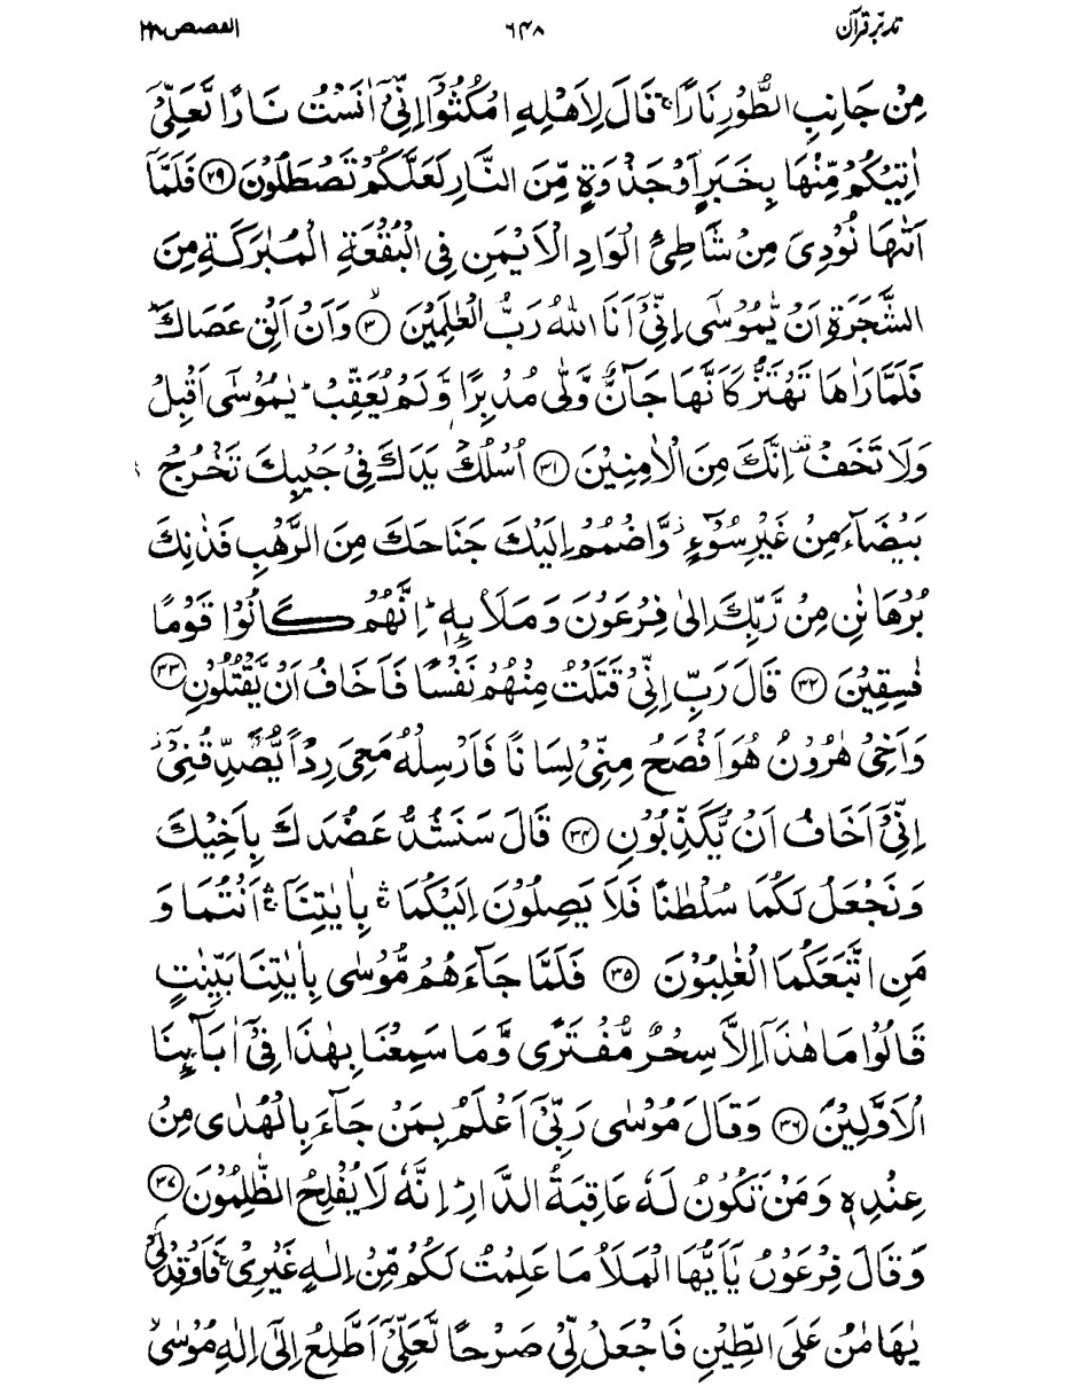 تدبّرِ قرآن ۶۴۸ القصص ۲۸
مِنْ جَانِبِ الطُّوْرِ نَارًا ۚ قَالَ لِاَهْلِهِ امْكُثُوْۤا اِنِّیْۤ اٰنَسْتُ نَارًا لَّعَلِّیْۤ
اٰتِیْكُمْ مِّنْهَا بِخَبَرٍ اَوْ جَذْوَةٍ مِّنَ النَّارِ لَعَلَّكُمْ تَصْطَلُوْنَ ﴿۲۹﴾ فَلَمَّاۤ
اَتٰىهَا نُوْدِیَ مِنْ شَاطِئِ الْوَادِ الْاَیْمَنِ فِی الْبُقْعَةِ الْمُبٰرَكَةِ مِنَ
الشَّجَرَةِ اَنْ یّٰمُوْسٰۤی اِنِّیْۤ اَنَا اللهُ رَبُّ الْعٰلَمِیْنَ ﴿۳۰﴾ۙ وَاَنْ اَلْقِ عَصَاكَ ؕ
فَلَمَّا رَاٰهَا تَهْتَزُّ كَاَنَّهَا جَآنٌّ وَّلّٰی مُدْبِرًا وَّلَمْ یُعَقِّبْ ؕ یٰمُوْسٰۤی اَقْبِلْ
وَلَا تَخَفْ ۫ اِنَّكَ مِنَ الْاٰمِنِیْنَ ﴿۳۱﴾ اُسْلُكْ یَدَكَ فِیْ جَیْبِكَ تَخْرُجْ
بَیْضَآءَ مِنْ غَیْرِ سُوْٓءٍ ؗ وَّاضْمُمْ اِلَیْكَ جَنَاحَكَ مِنَ الرَّهْبِ فَذٰنِكَ
بُرْهَانٰنِ مِنْ رَّبِّكَ اِلٰی فِرْعَوْنَ وَمَلَا۟ئِهٖ ؕ اِنَّهُمْ كَانُوْا قَوْمًا
فٰسِقِیْنَ ﴿۳۲﴾ قَالَ رَبِّ اِنِّیْ قَتَلْتُ مِنْهُمْ نَفْسًا فَاَخَافُ اَنْ یَّقْتُلُوْنِ ﴿۳۳﴾
وَاَخِیْ هٰرُوْنُ هُوَ اَفْصَحُ مِنِّیْ لِسَانًا فَاَرْسِلْهُ مَعِیَ رِدْاً یُّصَدِّقُنِیْۤ ؗ
اِنِّیْۤ اَخَافُ اَنْ یُّكَذِّبُوْنِ ﴿۳۴﴾ قَالَ سَنَشُدُّ عَضُدَكَ بِاَخِیْكَ
وَنَجْعَلُ لَكُمَا سُلْطٰنًا فَلَا یَصِلُوْنَ اِلَیْكُمَا ۛۚ بِاٰیٰتِنَاۤ ۛۚ اَنْتُمَا وَ
مَنِ اتَّبَعَكُمَا الْغٰلِبُوْنَ ﴿۳۵﴾ فَلَمَّا جَآءَهُمْ مُّوْسٰی بِاٰیٰتِنَا بَیِّنٰتٍ
قَالُوْا مَا هٰذَاۤ اِلَّا سِحْرٌ مُّفْتَرًی وَّمَا سَمِعْنَا بِهٰذَا فِیْۤ اٰبَآئِنَا
الْاَوَّلِیْنَ ﴿۳۶﴾ وَقَالَ مُوْسٰی رَبِّیْۤ اَعْلَمُ بِمَنْ جَآءَ بِالْهُدٰی مِنْ
عِنْدِهٖ وَمَنْ تَكُوْنُ لَهٗ عَاقِبَةُ الدَّارِ ؕ اِنَّهٗ لَا یُفْلِحُ الظّٰلِمُوْنَ ﴿۳۷﴾
وَقَالَ فِرْعَوْنُ یٰۤاَیُّهَا الْمَلَاُ مَا عَلِمْتُ لَكُمْ مِّنْ اِلٰهٍ غَیْرِیْ ۚ فَاَوْقِدْ لِیْ
یٰهَامٰنُ عَلَی الطِّیْنِ فَاجْعَلْ لِّیْ صَرْحًا لَّعَلِّیْۤ اَطَّلِعُ اِلٰۤی اِلٰهِ مُوْسٰی ۙ